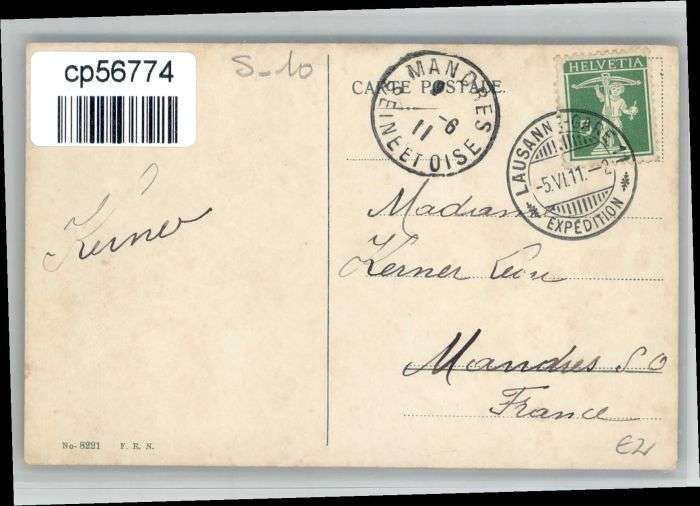 cp56774
S-10
CARTE POSTALE.
MANDRES
9
11 -6
SEINE ET OISE
HELVETIA
5
LAUSANNE
-5.VI.11.-2
EXPÉDITION
Kerner
Madame
Kerner Léon
Mandres S O
France
No- 8221 F. E. N.